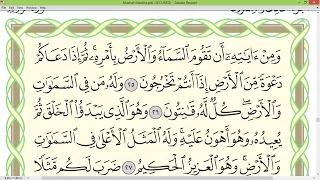 وَمِنْ ءَايَٰتِهِۦٓ أَن تَقُومَ ٱلسَّمَآءُ وَٱلْأَرْضُ بِأَمْرِهِۦ ۚ ثُمَّ إِذَا دَعَاكُمْ
دَعْوَةً مِّنَ ٱلْأَرْضِ إِذَآ أَنتُمْ تَخْرُجُونَ ٢٥ وَلَهُۥ مَن فِى ٱلسَّمَٰوَٰتِ
وَٱلْأَرْضِ ۖ كُلٌّ لَّهُۥ قَٰنِتُونَ ٢٦ وَهُوَ ٱلَّذِى يَبْدَؤُا۟ ٱلْخَلْقَ ثُمَّ
يُعِيدُهُۥ وَهُوَ أَهْوَنُ عَلَيْهِ ۚ وَلَهُ ٱلْمَثَلُ ٱلْأَعْلَىٰ فِى ٱلسَّمَٰوَٰتِ
وَٱلْأَرْضِ ۚ وَهُوَ ٱلْعَزِيزُ ٱلْحَكِيمُ ٢٧ ضَرَبَ لَكُم مَّثَلًا